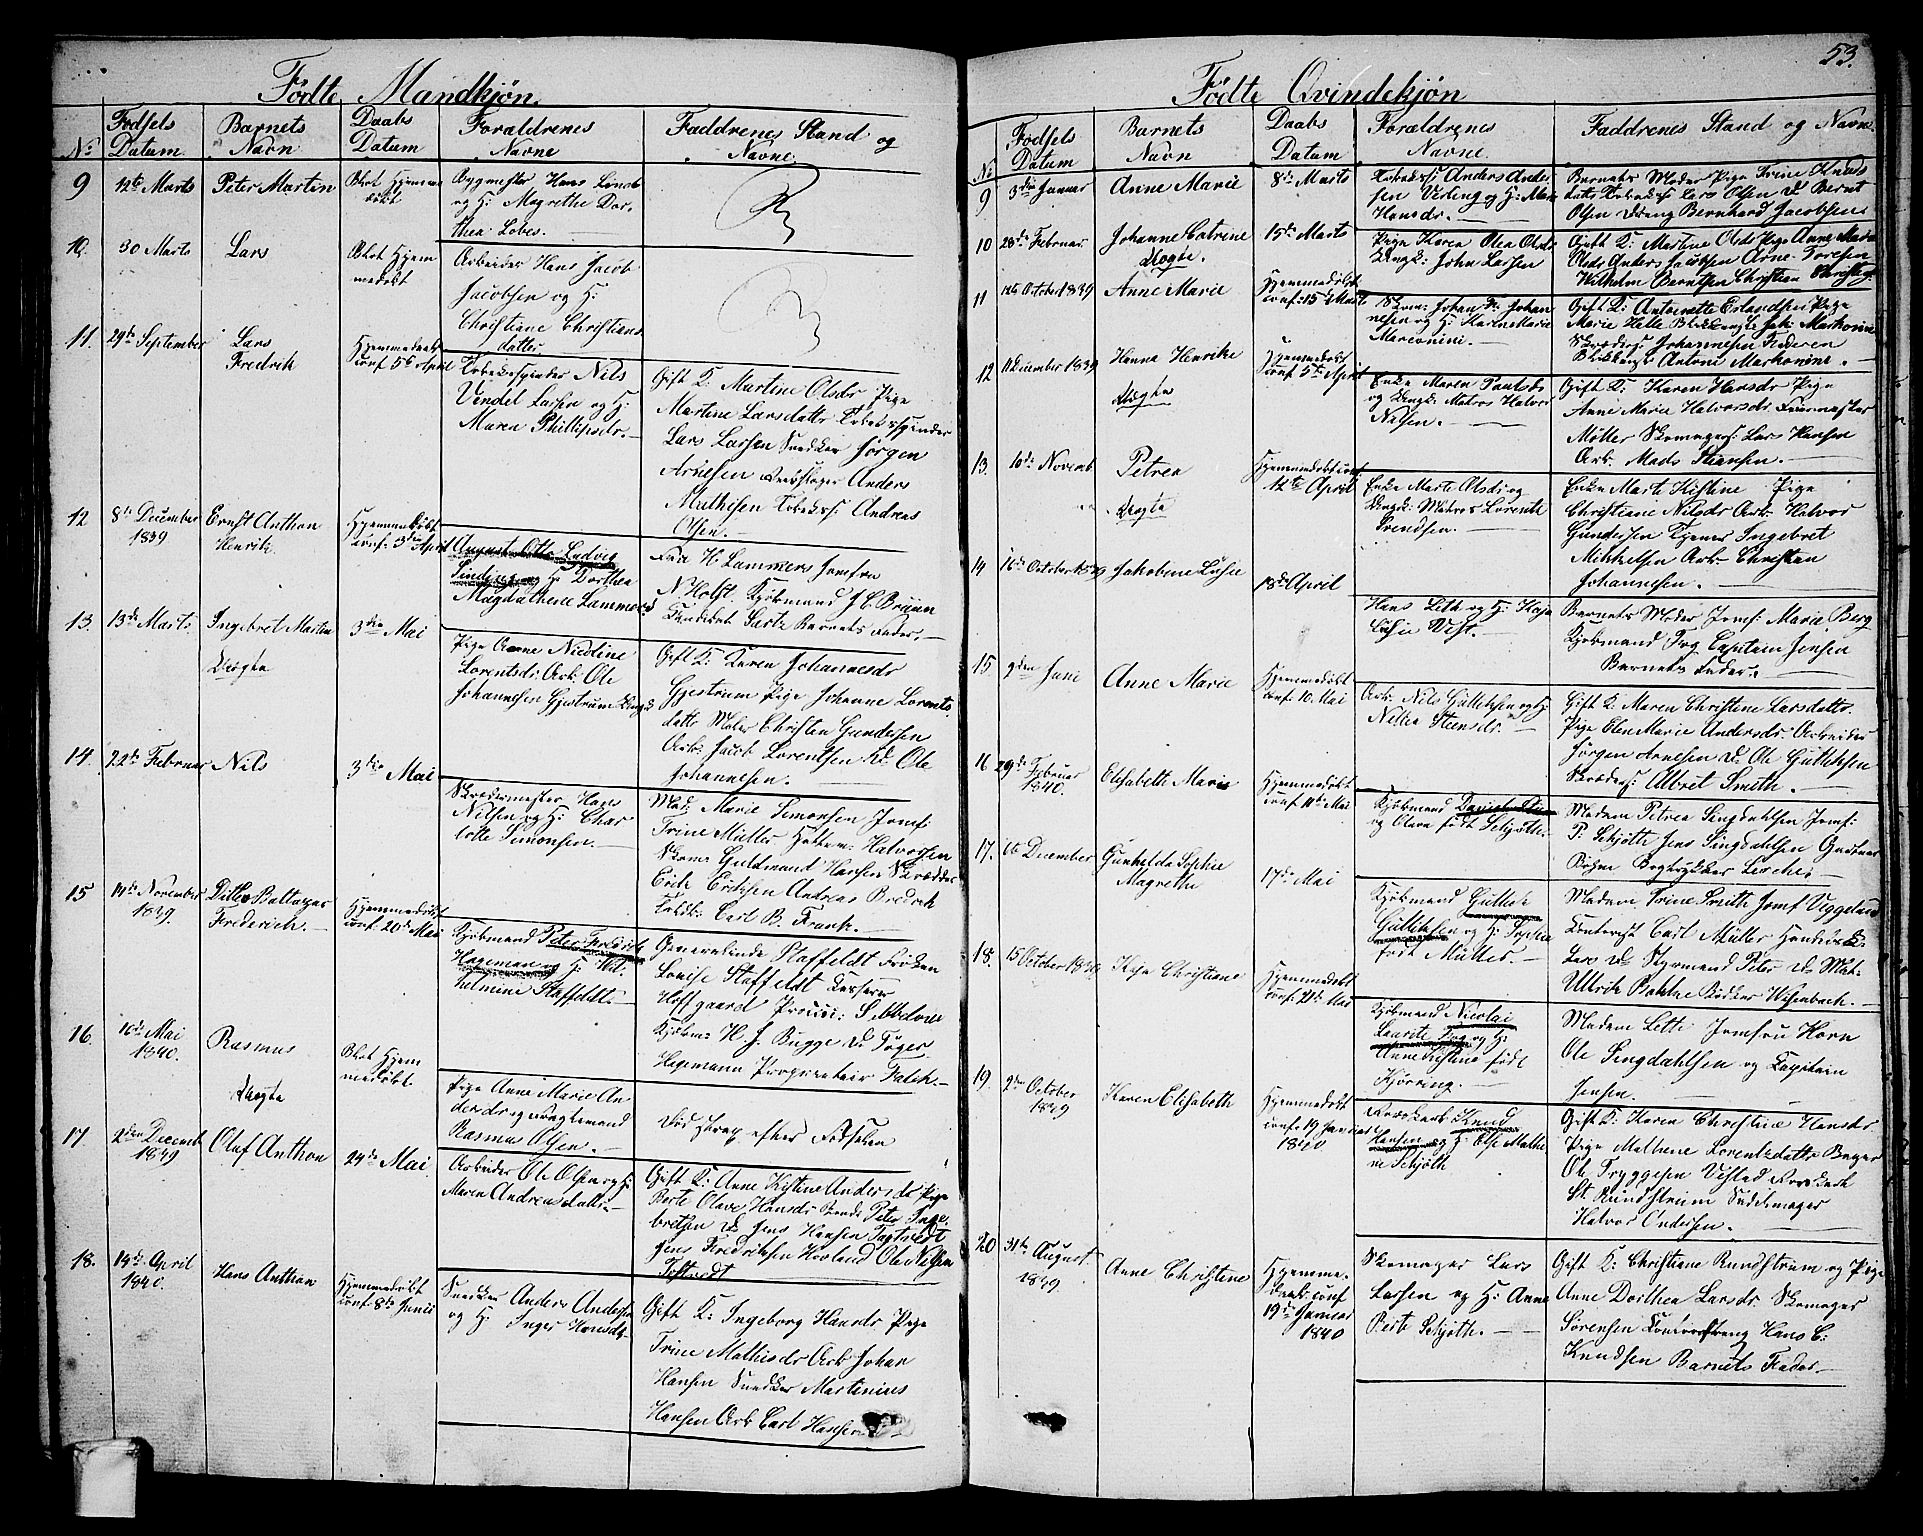 53.
Fødte Mandkjøn.
No
Fødsels Datum
Barnets Navn
Daabs Datum
Forældrenes Navne
Faddrenes Stand og Navne
9
12te Marts
Peter Martin
Blot Hjemme
døbt
Bygmester Hans Linds
og H: Magrethe Dor-
thea Lobes.
10.
30 Marts
Lars
Blot Hjem
medøbt
Arbeider Hans Jacob
Jacobsen og H:
Christiane Christians
datter
11.
29de September
Lars
Fredrik
Hjemmedøbt
conf 5te April
Tobaksspinder Nils
Vindel Larsen og H:
Maren Phillipsdr.
Gift K: Martine Olsdr Pige
Martine Larsdatter Tobaksspinder
Lars Larsen Snedker Jørgen
Arnesen Andres
Mathisen Tobakss Andreas
Olsen.
12
8de December
1839
Ernst Anthon
Henrik
Hjemmedøbt
conf. 3die April
August Otto Ludvig
Sinding og H: Dorthea
Magdalhene Lammers
Frue H. Lammers Jomfru
N. Holst. Kjøbmand J. C. Bruun
Barnets Fader.
13.
13de Marts
Ingebret Martin
Uægte
3die Mai
Pige Anne Nicoline
Lorentsdr Arb: Ole
Johannesen Gjestrum
Gift K: Karen Johannesdr
Gjestrum Pige Johanne Lorents
datter Maler Christen Gundersen
Arb: Jacob Lorentsen K: Ole
Johannesen.
14.
22de Februar
Nils
3die Mai
Skrædermester Hans
Nilsen og H: Char
lotte Simonsen.
Mad. Marie Simonsen Jomf:
Trine Müller Hattem: Halvorsen
Skom: Guldmand Hansen Skrædder
Erik Eriksen Andreas Bredrik
Carl B. Frank.
15
14de November
1839
Ditlev Baltazar
Frederich.
Hjemmedøbt
conf. 20de Mai
Kjøbmand Peter Fredrik
Hageman og H: Wil-
helmine Staffeldt.
Generalinde Staffeldt Frøken
Louise Staffeldt Kasserer
Hoffgaard
Kjøbm: H. J. Bugge
Hagemann Proprietair Falch.
16.
10de Mai
1840.
Rasmus
Uægte
Blot Hjem
medøbt
Pige Anne Marie An
dersdr og
Rasmus Olsen.
Død strax efter Fødselen
17.
2den Decemb
1839
Oluf Anthon
24de Mai
Arbeider Ole Olsen og H:
Maren Andreasdatter
Gift K: Anne Kistine Andersdr Pige
Berte Olave Hansdr Peter Inge
bretsen Jens Hansen Toftvedt
Jens Fredriksen Hovland Ole Nilsen
Toftvedt
18.
14de April
1840.
Hans Anthon
Hjemmedøbt
conf 8de Junii
Snedker Anders Anders
og H: Inger Hansdr
Gift K: Ingeborg Hansdr Pige
Trine Mathisdr Arb Johan
Hansen Snedker Martinius
Hansen Arb Carl Hansen
Fødte Qvindekjøn
No
Fødsels Datum
Barnets Navn
Daabs Datum
Forældrenes Navne
Faddrenes Stand og Navne
9
3die Januar
Anne Marie
8de Marts
Tobakss: Anders Ander
sen Verling og H: Mari
Hansdr.
Barnets Moder Pige Trine Knuds
datter Tobakss: Lars Olsen Bernt
Olsen Dreng Bernhard Jacobsen
10
28de Februar
Johanne Catrine
Uægte.
15de Marts
Pige Karen Olea Olsdr
Ungk: John Larsen
Gift K: Martine Olsdr Pige Anne Marie
Olsdr Anders Jacobsen Arne Toresen
Wilhelm Berntsen Christian
11
October 1839
Anne Marie
Hjemmedøbt
conf: 15de Marts
Skom: Johan Fr: Johan
nesen og H: Karen Marie
Marconini.
Gift K: Antonette Erlandsen Pige
Marie Helle Blikkensl: Joh: Markonini
Skræders: Johannesen Faderen
Blikkensl: Antoni Markonini.
12
December 1839
Hanna Henrikke
Uægte
Hjemmedøbt
conf 5te April
Enke Maren Paulsdr
og Ungk: Matros Halvor
Nilsen.
Gift K: Karen Hansdr Pige
Anne Marie Halvorsdr Feiermester
Møller Skomagers: Lars Hansen
Arb: Mads Stiansen.
13.
10de Novemb
Petrea
Uægte
Hjemmedøbt conf.
12te April
Enke Marte Olsdr og
Ungk: Matros Lorents
Svendsen.
Enke Marte Kistine Pige
Christiane Nilsdr Arb: Halvor
Gundersen Tjener Ingebret
Mikkelsen Arb: Christian
Johannesen.
14
16de October 1839
Jakobine Lusie
18de April
Hans Leth og H: Kaja
Lusie Vest.
Barnets Moder Jomf: Marie Berg
Kjøbmand Fog Capitein Jensen
Barnets Fader.
15
9den Juni
Anne Marie
Hjemmedøbt
conf. 10. Mai
Arb: Nils Gullichsen og H:
Nillea Steensdr.
Gift K: Maren Christine Larsdatter
Pige Elen Marie Andersdr. Arbeider
Jørgen Arnesen Ole Gullichsen
Skræders: Albret Smith.
16
29de Februar
1840.
Elisabeth Marie
Hjemmedøbt
conf 11te Mai
Kjøbmand
og Olava født Schjøtt.
Madam Petrea Singdahlsen Jomf:
P. Schjøth Jens Singdahlsen
Bohm Bogtrykker
17.
December
Gunhilda Sophie
Magrethe
17de Mai
Kjøbmand Gullich
Gullichsen og H: Sophie
født Müller.
Madam Trine Smith Jomf Viggeland
Carl Müller
Styrmand Peter
Ullrik Bødker Wisenbach.
18.
15 October 1839
Kaja Christiane
Hjemmedøbt
conf. 21de Mai
Kjøbmand Nicolai
Laurits Fog og H:
Anne Kistine født
Hjørring.
Madam Lette Jomfru Horn
Ole Singdahlsen og Kapitein
Jensen.
19.
2den October
1839
Karen Elisabeth
Hjemmedøbt
conf 19 Januar
1840
Knud
Hansen og H: Else Mathe
ne Schjøth
Gift K: Karen Christine Hansdr
Pige Mathene Lorentzdatter Bager
Ole Tryggesen Vefstad
St. Rundstrøm Sadelmager
Halvor Andersen.
20
31te August
1839.
Anne Christine
Hjemme-
døbt. conf
19de Januar
1840
Skomager Lars
Larsen og H: Anne
Berte Schjøth.
Gift K: Christiane Rundstrøm og Pige
Anne Dorthea Larsdr. Skomager
Sørensen Hans C:
Knudsen Barnets Fader